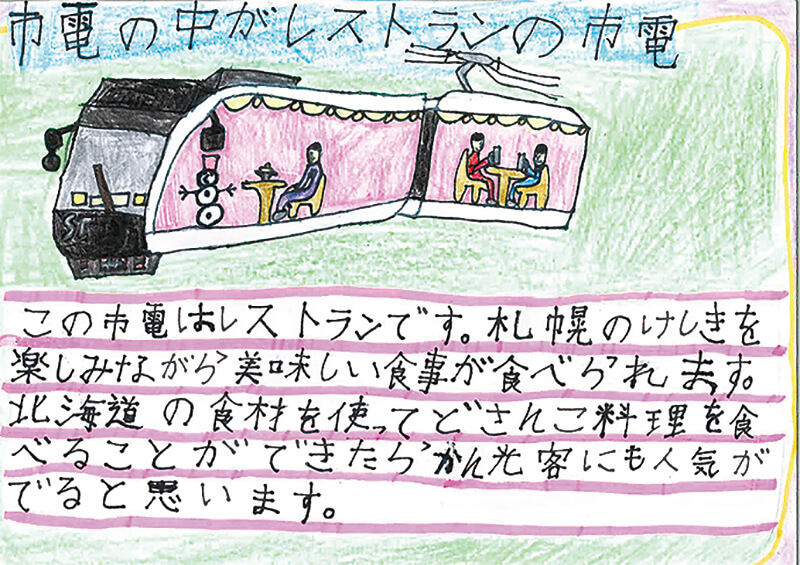 市電の中がレストランの市電
この市電はレストランです。札幌のけしきを
楽しみながら美味しい食事が食べられます。
北海道の食材を使ってどさんこ料理を食
べることができたらかん光客にも人気が
でると思います。